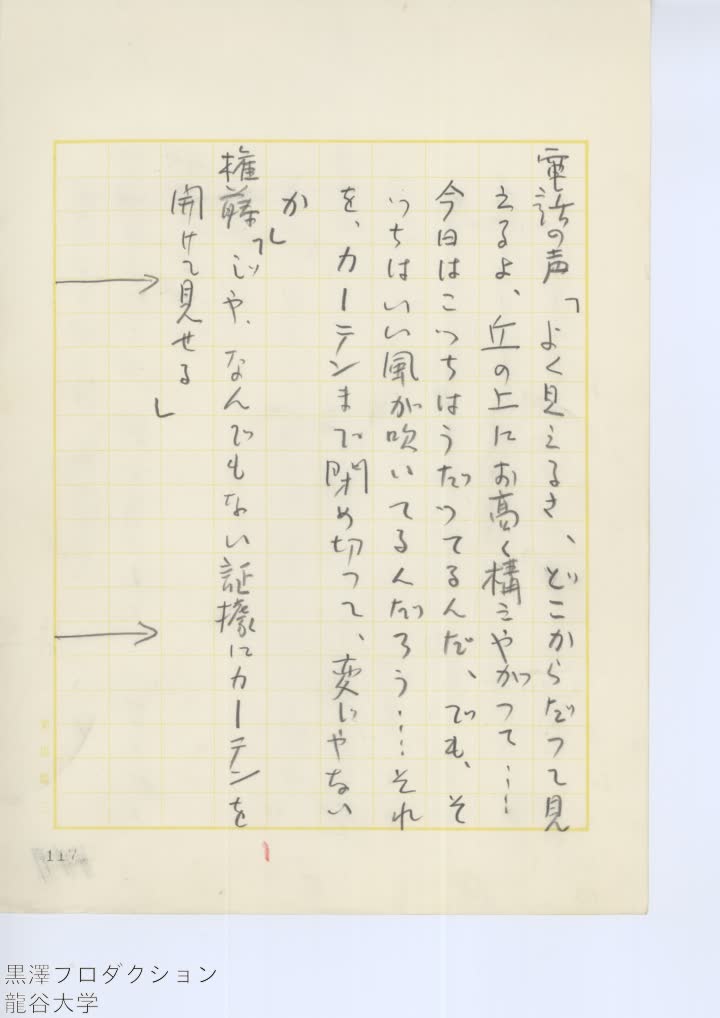 電話の声「よく見えるさ、どこからだつて見
えるよ、丘の上にお高く構えやがつて・・・
今日はこつちはうだつてるんだ、でも、そ
つちはいい風が吹いてるんだろう・・・それ
を、カーテンまで閉め切つて、変じやない
か」
権藤「じや、なんでもない証拠にカーテンを
開けて見せる」
117
1
黒澤プロダクション
龍谷大学